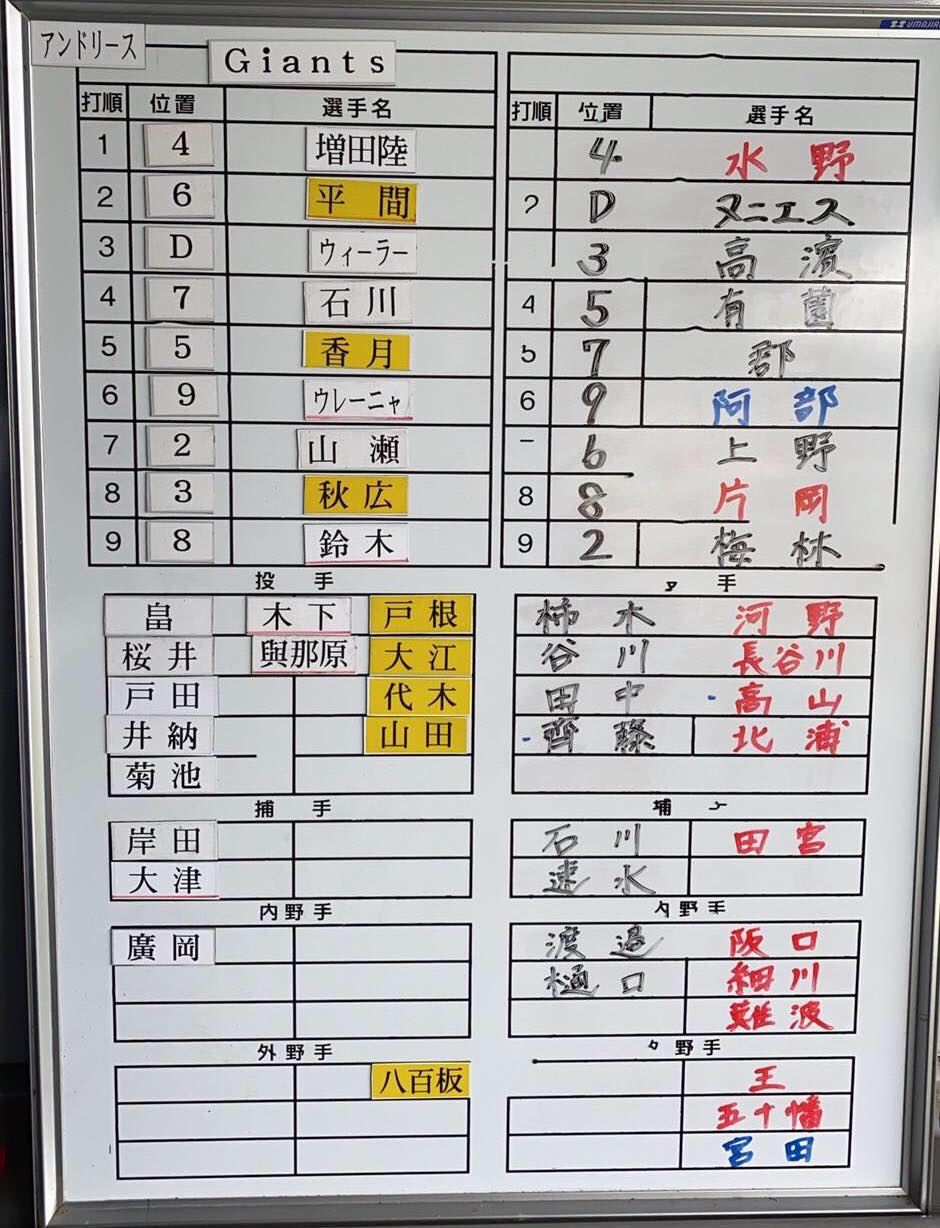 UMAJIRI
アンドリース
Giants
打順 位置 選手名
1 4 増田陸
2 6 平間
3 D ウィーラー
4 7 石川
5 5 香月
6 9 ウレーニャ
7 2 山瀬
8 3 秋広
9 8 鈴木
投手
畠 木下 戸根
桜井 與那原 大江
戸田 代木
井納 山田
菊池
捕手
岸田
大津
内野手
廣岡
外野手
八百板
打順 位置 選手名
4 水野
2 D ヌニエス
3 高濱
4 5 有薗
5 7 郡
6 9 阿部
6 上野
8 8 片岡
9 2 梅林
手
柿木 河野
谷川 長谷川
田中 高山
齊藤 北浦
捕
石川 田宮
速水
内野手
渡邉 阪口
樋口 細川
難波
野手
王
五十幡
宮田